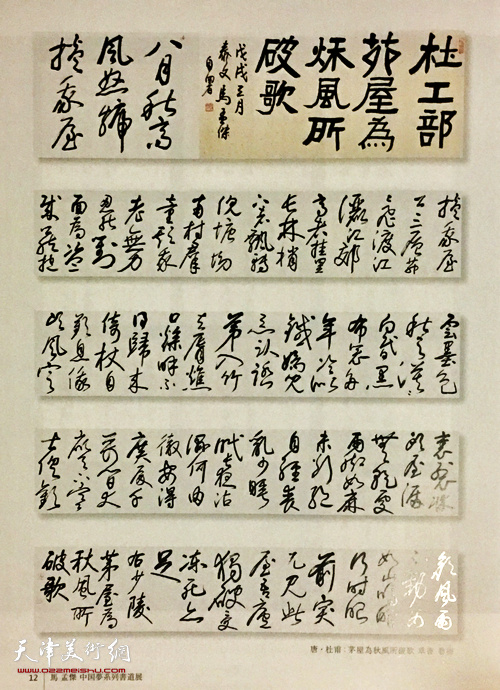 杜工部
茆屋為
秌風所
破歌
戊戌三月
泰文馬孟傑
八月秋高
風怒號
捲我屋
捲我屋
上三重茅
飛渡江
灑江郊
高者挂罥
長林梢
下者飄轉
沉塘坳
南村羣
童欺我
老無力
忍能對
面為盜
賊公然抱
雲墨色
秋天漠漠
向昏黑
布衾多
年冷似
鐵嬌兒
惡卧踏
茅入竹
去脣焦
口燥呼不
得歸來
倚杖自
歎息俄
頃風定
裏裂牀
頭屋漏
無乾處
雨腳如麻
未斷絕
自經喪
亂少睡
眠長夜沾
濕何由
徹安得
廣廈千
萬間大
庇天下寒
士俱歡
顏風雨
不動安
如山嗚呼
何時眼
前突
兀見此
屋吾廬
獨破受
凍死亦
足
右少陵
茅屋為
秋風所
破歌
唐·杜甫：茅屋為秋風所破歌 草書
天津美术网
12 馬孟傑 中国夢系列書道展